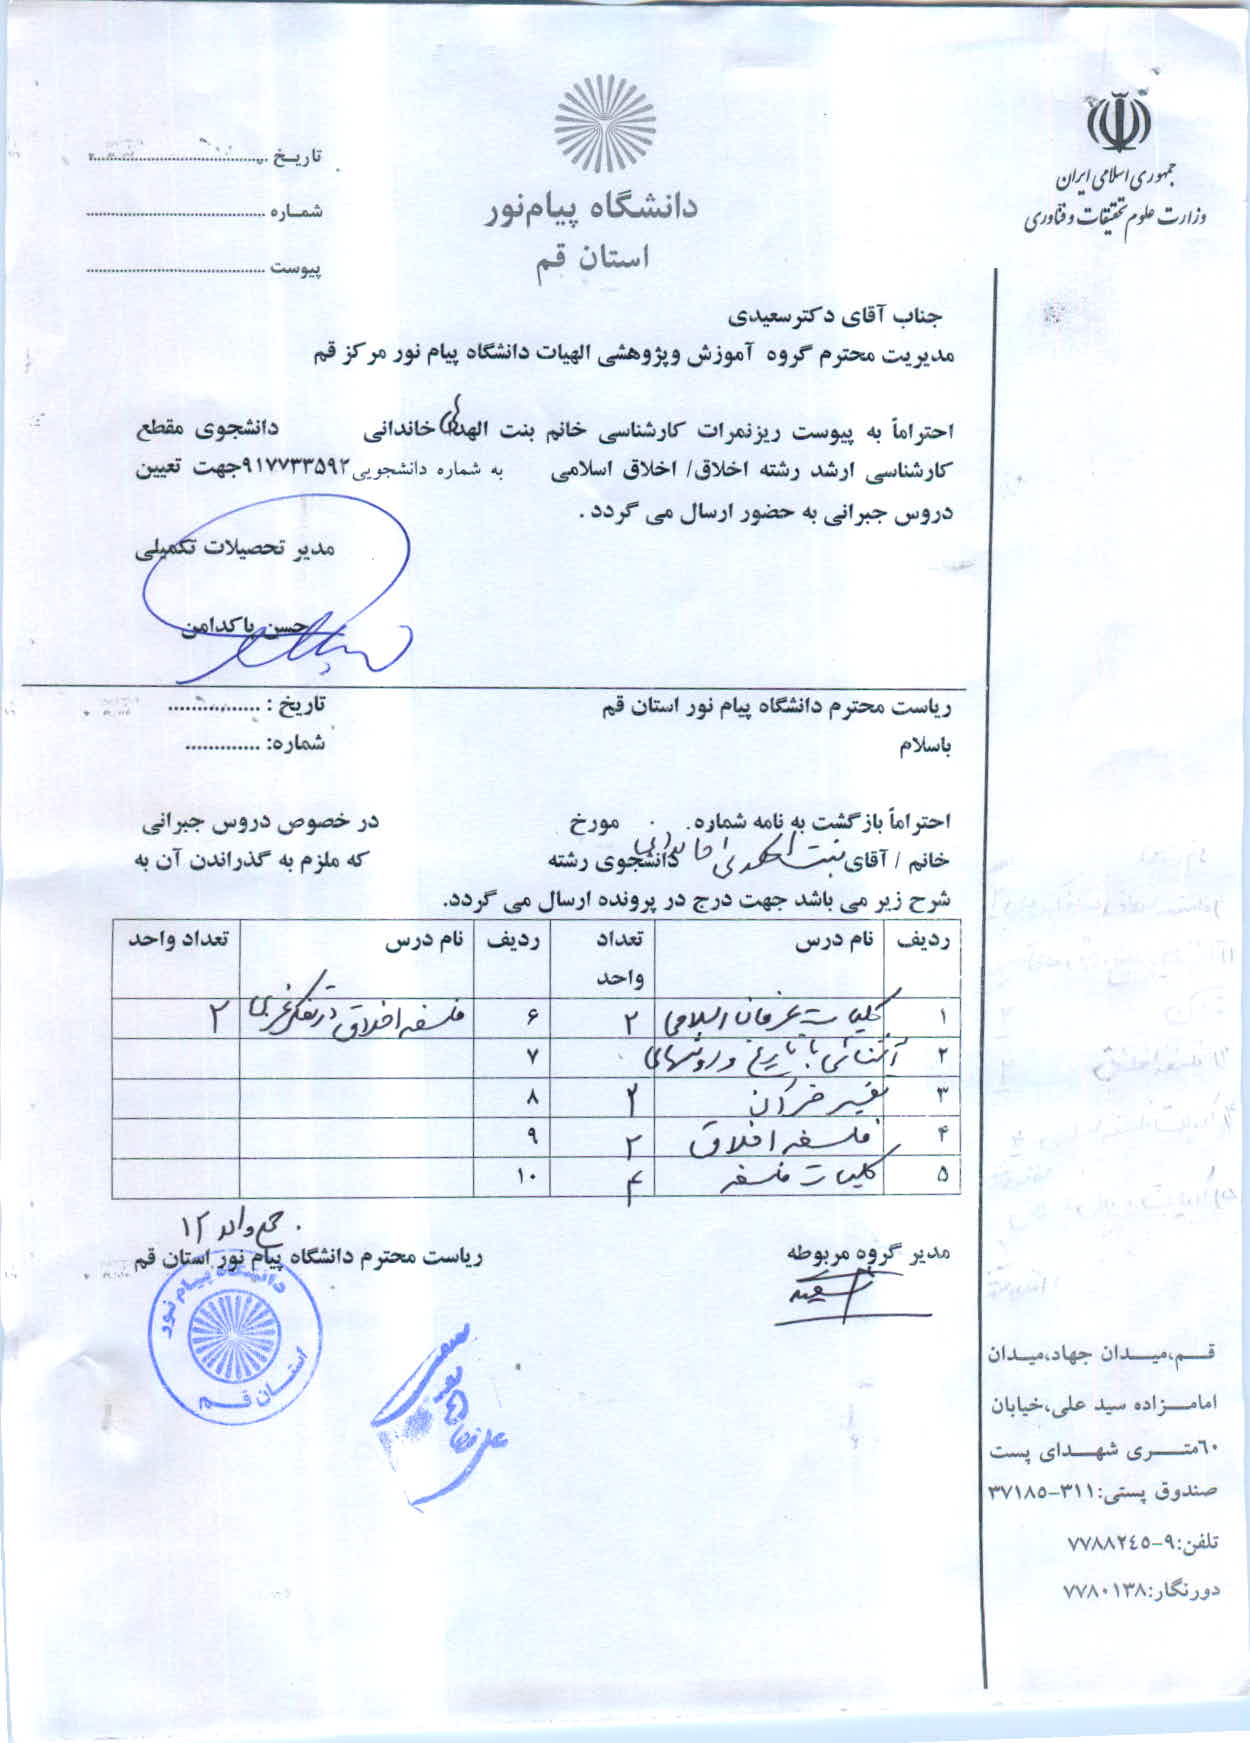 جمهوری اسلامی ایران
وزارت علوم تحقیقات و فناوری
دانشگاه پیام‌نور
استان قم
تاریـخ ........................................
شمـاره ........................................
پیوست ........................................
جناب آقای دکترسعیدی
مدیریت محترم گروه آموزش وپژوهشی الهیات دانشگاه پیام نور مرکز قم
احتراماً به پیوست ریزنمرات کارشناسی خانم بنت الهدی خاندانی دانشجوی مقطع
کارشناسی ارشد رشته اخلاق/ اخلاق اسلامی به شماره دانشجویی۹۱۷۷۳۳۵۹۲جهت تعیین
دروس جبرانی به حضور ارسال می گردد .
مدیر تحصیلات تکمیلی
حسن پاکدامن
ریاست محترم دانشگاه پیام نور استان قم تاریخ : ................
باسلام شماره: .............
احتراماً بازگشت به نامه شماره. . مورخ در خصوص دروس جبرانی
خانم / آقای بنت الهدی خاندانی دانشجوی رشته که ملزم به گذراندن آن به
شرح زیر می باشد جهت درج در پرونده ارسال می گردد.
ردیف نام درس تعداد واحد ردیف نام درس تعداد واحد
۱ کلیات عرفان اسلامی ۲ ۶ فلسفه اخلاق در تفکر غرب ۲
۲ آشنائی با تاریخ و روشهای ۷
۳ تفسیر قرآن ۲ ۸
۴ فلسفه اخلاق ۲ ۹
۵ کلیات فلسفه ۴ ۱۰
جمع واحد ۱۲
مدیر گروه مربوطه ریاست محترم دانشگاه پیام نور استان قم
دانشگاه پیام نور
استـان قـم
قــم،میــدان جهاد،میـدان
امامــزاده سید علی،خیابان
۶۰متــری شهــدای پست
صندوق پستی:۳۱۱-۳۷۱۸۵
تلفن:۹-۷۷۸۸۲۴۵
دورنگار:۷۷۸۰۱۳۸